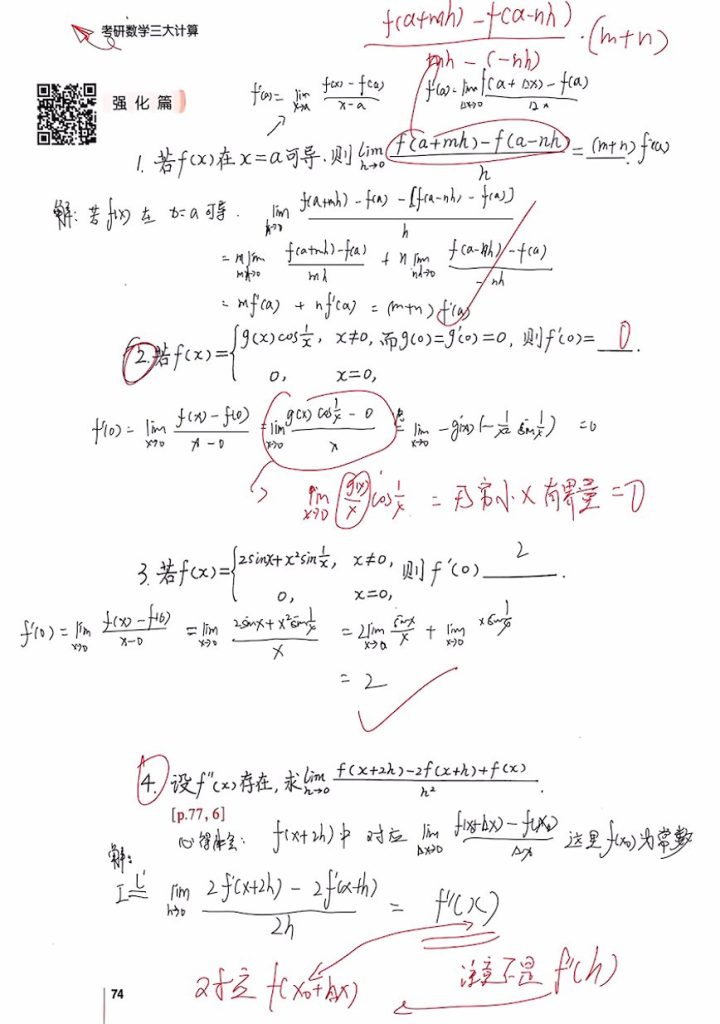 考研数学三大计算
f(a+mh)-f(a-nh) / mh-(-nh) ·(m+n)
强化篇
f'(a)= lim x→a f(x)-f(a) / x-a
f'(a)= lim Δx→0 f(a+Δx)-f(a) / Δx
1. 若f(x)在x=a可导,则 lim h→0 f(a+mh)-f(a-nh) / h = (m+n) f'(a)
解: 若f(x)在 x=a可导. lim h→0 f(a+mh)-f(a)-[f(a-nh)-f(a)] / h
= m lim mh→0 f(a+mh)-f(a) / mh + n lim nh→0 f(a-nh)-f(a) / -nh
= mf'(a) + nf'(a) = (m+n) f'(a)
2. 若f(x)= { g(x)cos 1/x, x≠0, 而g(0)=g'(0)=0, 则f'(0)= 0 .
0, x=0,
f'(0)= lim x→0 f(x)-f(0) / x-0 = lim x→0 g(x)cos 1/x - 0 / x = lim x→0 -g(x)(-1/x2 sin 1/x) =0
lim x→0 g(x)/x cos 1/x = 无穷小×有界量=0
3. 若f(x)= { 2sinx+x²sin 1/x, x≠0, 则f'(0) 2 .
0, x=0,
f'(0)= lim x→0 f(x)-f(0) / x-0 = lim x→0 2sinx+x²sin 1/x / x = 2 lim x→0 sinx/x + lim x→0 x sin 1/x
= 2
4. 设f''(x)存在,求 lim h→0 f(x+2h)-2f(x+h)+f(x) / h² .
[p.77, 6]
心得体会: f(x+2h)中 对应 lim Δx→0 f(x0+Δx)-f(x0) / Δx 这里f(x0)为常数
解:
I L' = lim h→0 2f'(x+2h)-2f'(x+h) / 2h = f''(x)
对应 f(x0+Δx)
注意不是 f'(h)
74